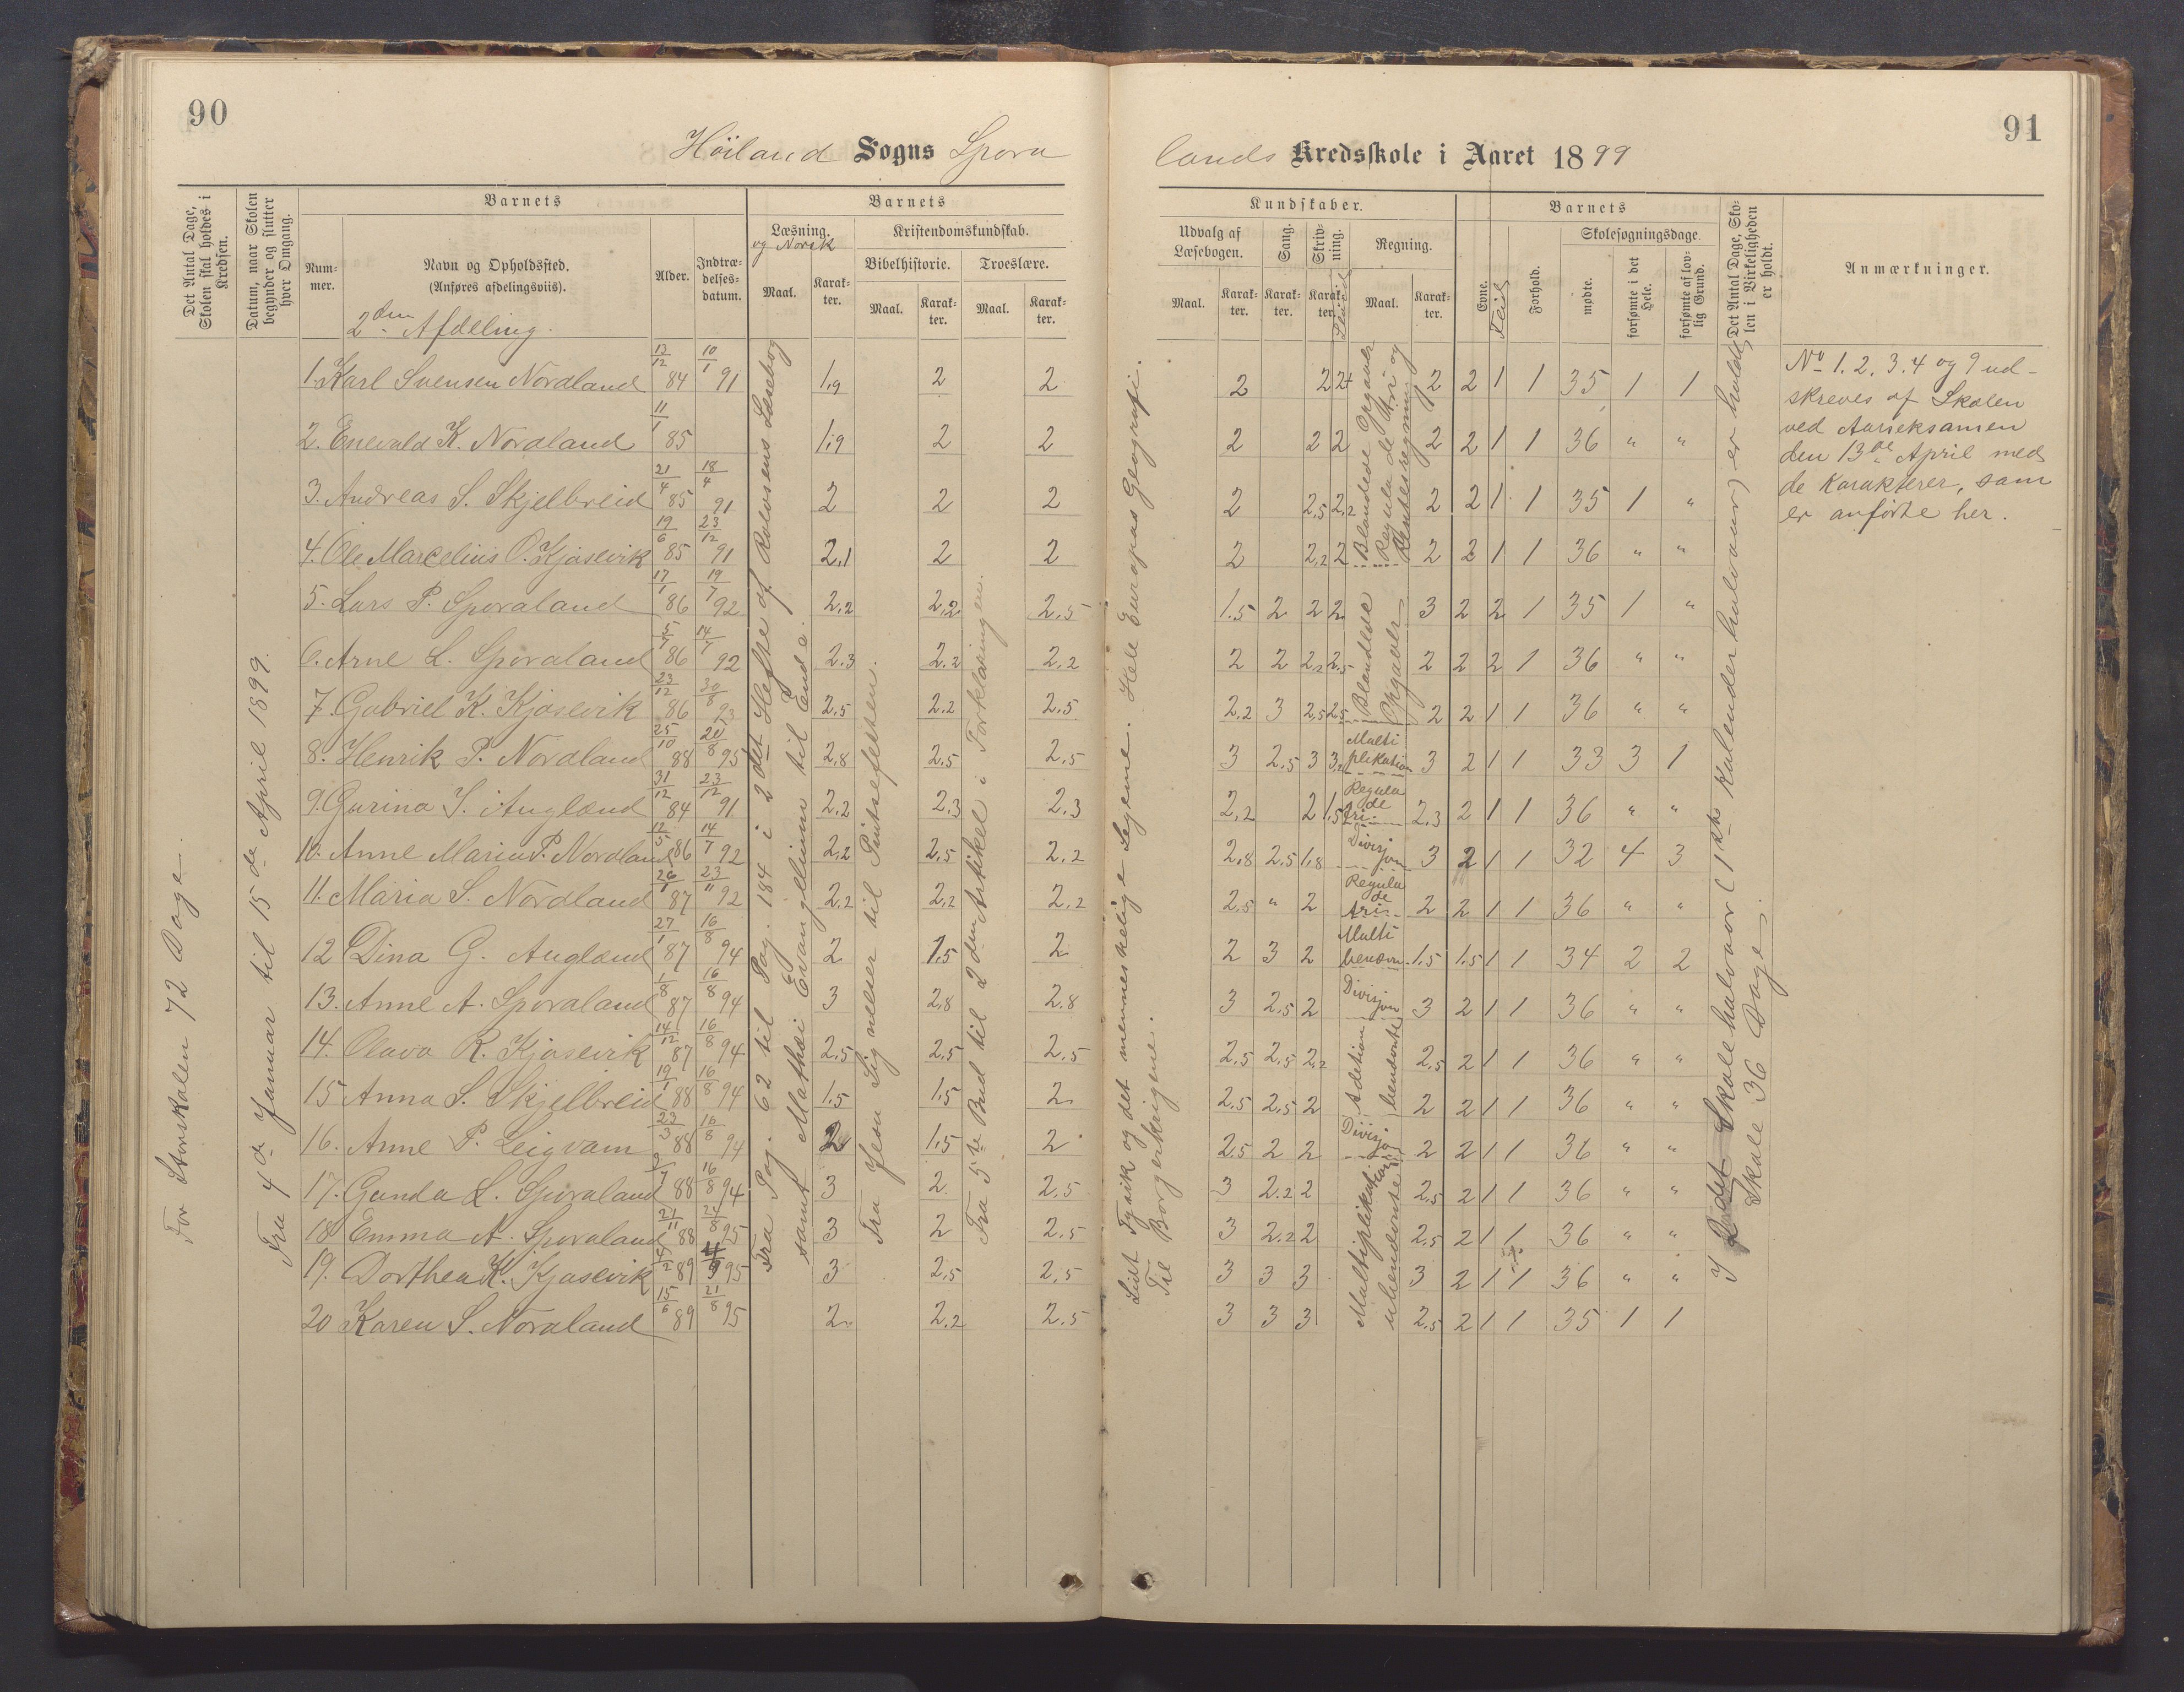 90
91
Höiland Sogns Spora
lands Kredsskole i Aaret 1899
Det Antal Dage, Skolen skal holdes i Kredsen.
Datum, naar Skolen begynder og slutter hver Omgang.
Barnets
Num-mer.
Navn og Opholdssted.
(Anføres afdelingsviis).
Alder.
Indtræ-delses-datum.
Barnets
Læsning.
og Norsk
Maal.
Karak-ter.
Kristendomskundskab.
Bibelhistorie.
Troeslære.
Maal.
Karak-ter.
Maal.
Karak-ter.
Kundskaber.
Udvalg af Læsebogen.
Sang.
Skriv-ning.
Regning.
Maal.
Karak-ter.
Karak-ter.
Karak-ter.
Maal.
Karak-ter.
Barnets
Evne.
Flid
Forhold.
Skolesøgningsdage.
mødte.
forsømte i det Hele.
forsømte af lov-lig Grund.
Det Antal Dage, Sko-len i Virkeligheden er holdt.
Anmærkninger.
2den Afdeling.
For Storskolen 72 Dage.
Fra 4de Januar til 15de April 1899.
Fra Pag. 62 til Pag. 184 i 2det Hefte af Rolvsens Læsebog
samt Mathæi Evangelium til Ende.
Fra Jesu Lignelser til Pintsefesten.
Fra 5te Bud til 2den Artikkel i Forklaringen.
Lidt Fysik og det menneskelige Legeme. Hele Europas Geografi.
Til Borgerkrigene.
1. Karl Svensen Nordland 13/12 84 10/1 91 1,9 2 2 2 2 2+ 2 2 1 1 35 1 1
2. Enevald K. Nordland 11/1 85 1,9 2 2 2 2 2 2 2 1 1 36 " "
3. Andreas S. Skjelbreid 21/4 85 18/4 91 2 2 2 2 2,5 2,2 2 2 1 1 35 1 "
4. Ole Marcelius O. Kjosevik 19/6 85 23/12 91 2,1 2 2 2 2,2 2 2 2 1 1 36 " "
Blandede Opgaver
Regula de tri og
Rentesregning
5. Lars P. Sporaland 17/1 86 19/7 92 2,2 2,2 2,5 1.5 2 2 2 3 2 2 1 35 1 "
6. Arne L. Sporaland 5/7 86 14/7 92 2.3 2,2 2,2 2 2 2,2 2,5 2 2 2 1 36 " "
7. Gabriel K. Kjosevik 23/12 86 30/8 93 2,5 2,2 2,5 2,2 3 2,5 2,5 2 2 1 1 36 " "
Blandede
Opgaver
8. Henrik P. Nordland 25/10 88 21/8 95 2,8 2,5 2,5 3 2,5 3 3,2 Multiplikation 3 2 1 1 33 3 1
9. Gurina S. Auglænd 31/12 84 23/12 91 2,2 2,3 2,3 2,2 2 1,5 Regula de tri 2.3 2 1 1 36 " "
10. Anne Maria P. Nordland 12/5 86 14/7 92 2,2 2,5 2,2 2,8 2,5 1,8 Divisjon 3 2 1 1 32 4 3
11. Maria S. Nordland 26/1 87 23/11 92 2,2 2,2 2,2 2,5 " 2 Regula de tri 2 2 1 1 36 " "
12 Dina G. Auglænd 27/1 87 16/8 94 2 1,5 2 2 3 2 Multi benævn 1.5 1.5 1 1 34 2 2
13. Anne A. Sporaland 1/8 87 16/8 94 3 2,8 2.8 3 2,5 2 Divisjon 3 2 1 1 36 " "
14. Olava R. Kjosevik 14/12 87 16/8 94 2,5 2,5 2,5 2,5 2,5 2,2 2,5 2 1 1 36 " "
15 Anna S. Skjelbreid 19/1 88 16/8 94 1.5 1.5 2 2.5 2,5 2 2 2 1 1 36 " "
Adetion
benævnte
16. Anne P. Leigvam 23/3 88 16/8 94 2 1,5 2 2.5 2 2 2 2 1 1 36 " "
17. Gunda L. Sporaland 2/7 88 16/8 94 3 2 2,5 3 2.2 2 2,5 2 1 1 36 " "
18 Emma A. Sporaland 21/11 88 21/8 95 3 2 2,5 3 2.2 2 2,5 2 1 1 36 " "
19. Dorthea K. Kjosevik 4/2 89 95 3 2,5 2,5 3 3 3 3 2 1 1 36 " "
20 Karen S. Nordland 15/6 89 21/8 95 2 2,2 2.5 3 3 3 2,5 2 1 1 35 1 1
Multiplikation
ubenævnte
I 2det Skolehalvaar (1ste Kalenderhalvaar) er holdt
Skole 36 Dage.
No 1. 2. 3. 4 og 9 ud-
skreves af Skolen
ved Aarseksamen
den 13de April med
de Karakterer, som
er anførte her.